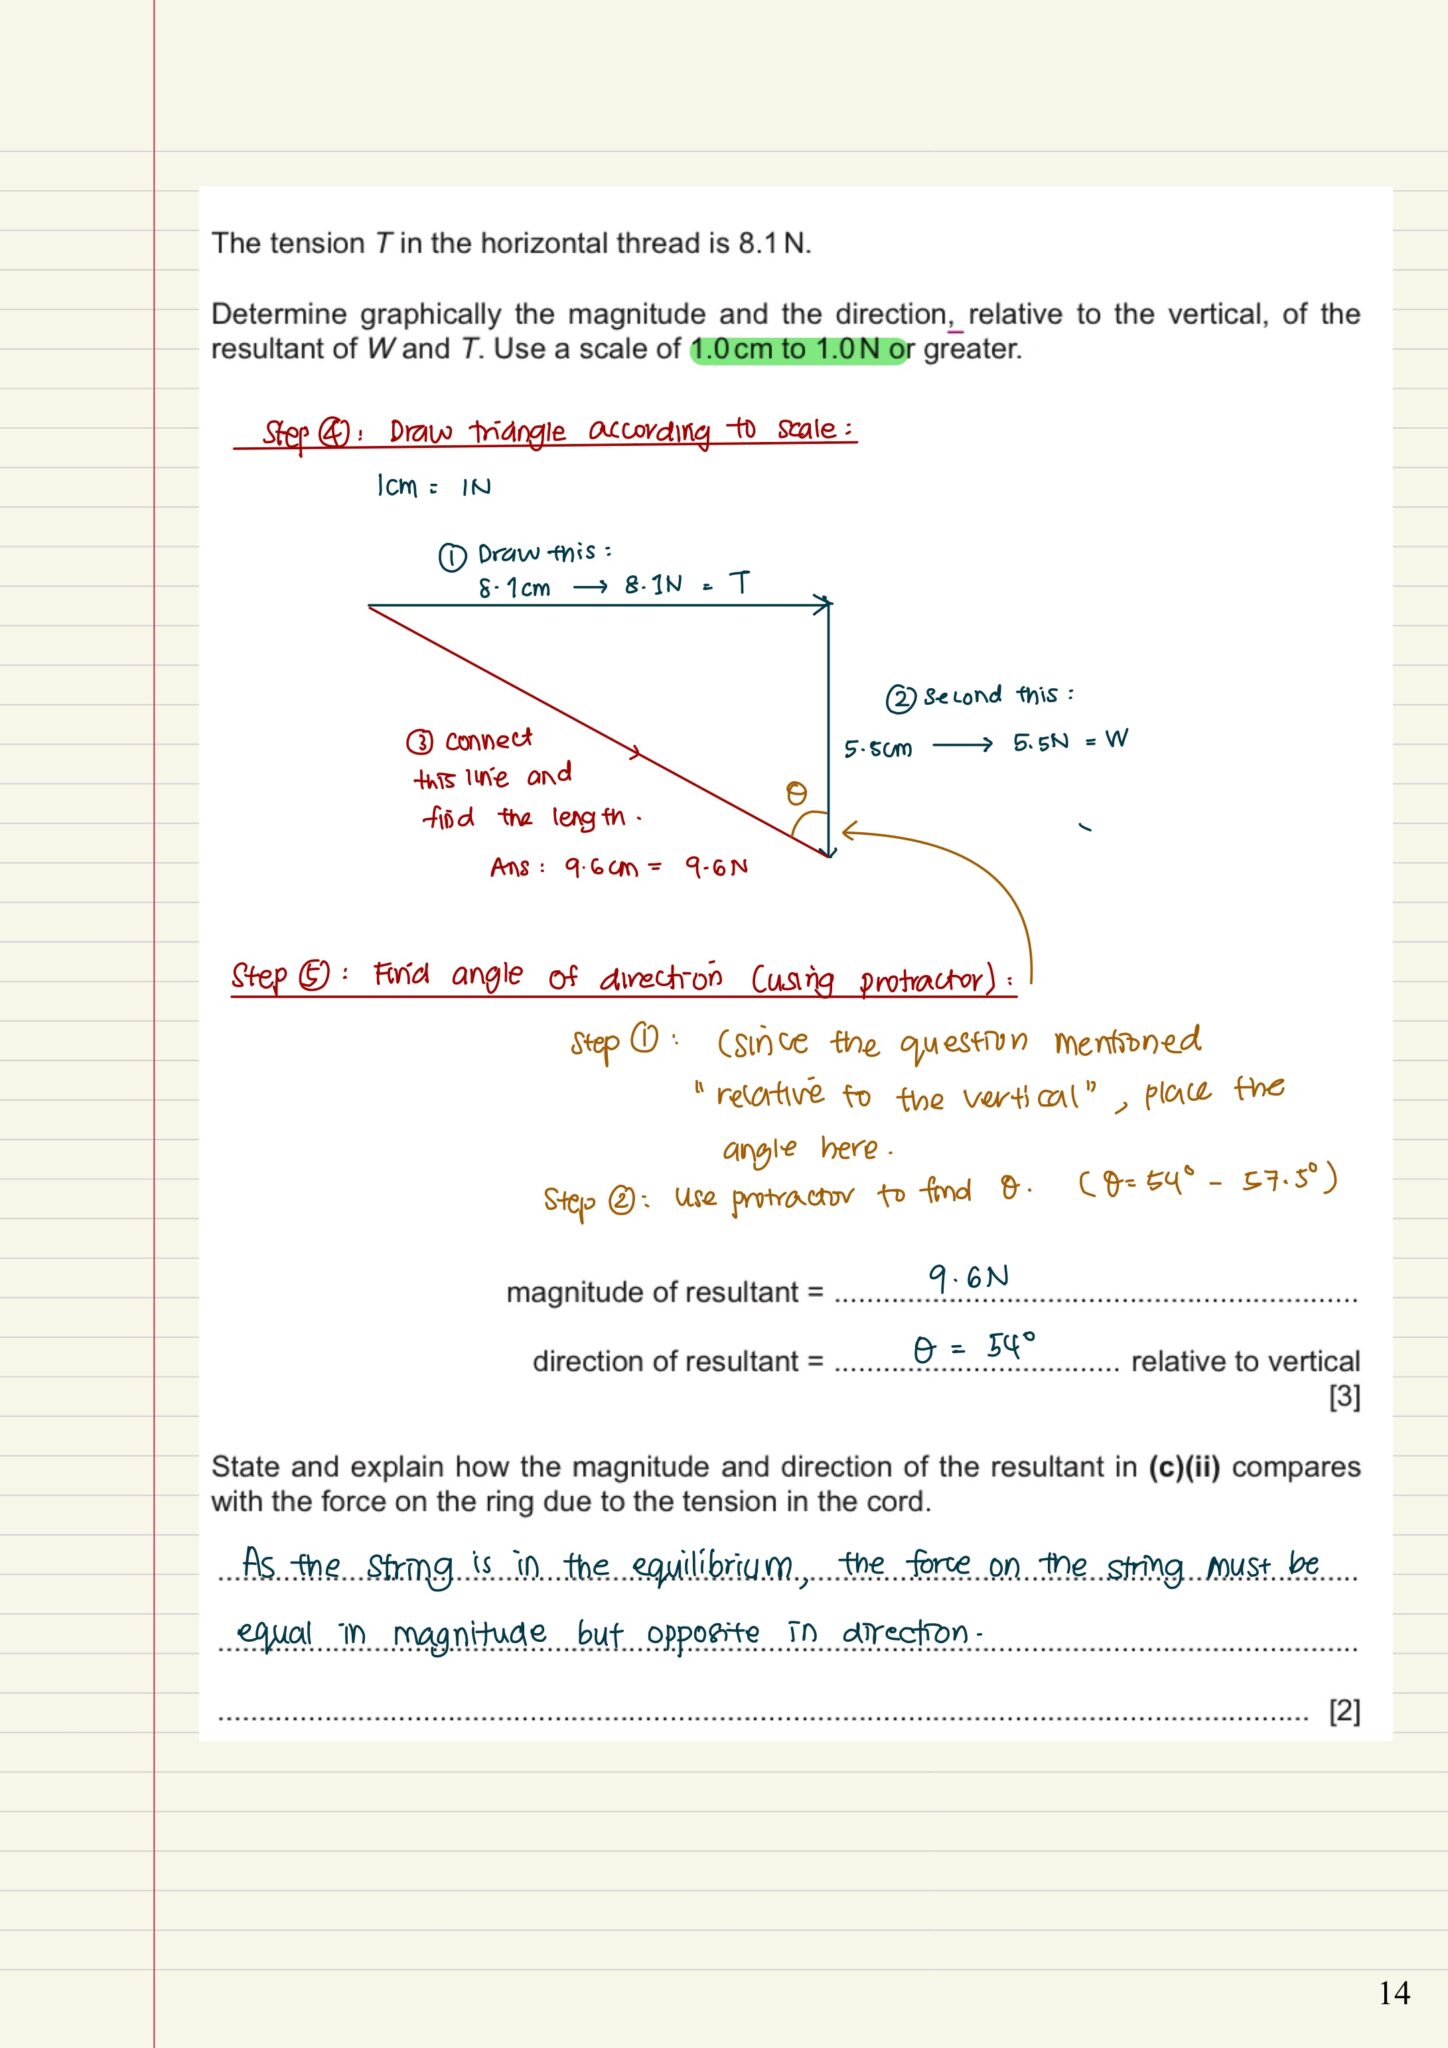 The tension T in the horizontal thread is 8.1 N.
Determine graphically the magnitude and the direction, relative to the vertical, of the
resultant of W and T. Use a scale of 1.0 cm to 1.0 N or greater.
Step ④: Draw triangle according to scale:
1cm = 1N
① Draw this:
8.1cm → 8.1N = T
② Second this:
5.5cm → 5.5N = W
③ Connect
this line and
find the length.
Ans: 9.6cm = 9.6N
θ
Step ⑤: Find angle of direction (using protractor):
Step ①: (since the question mentioned
"relative to the vertical", place the
angle here.
Step ②: Use protractor to find θ. (θ = 54° - 57.5°)
magnitude of resultant = 9.6N
direction of resultant = θ = 54° relative to vertical
[3]
State and explain how the magnitude and direction of the resultant in (c)(ii) compares
with the force on the ring due to the tension in the cord.
As the string is in the equilibrium, the force on the string must be
equal in magnitude but opposite in direction.
[2]
14